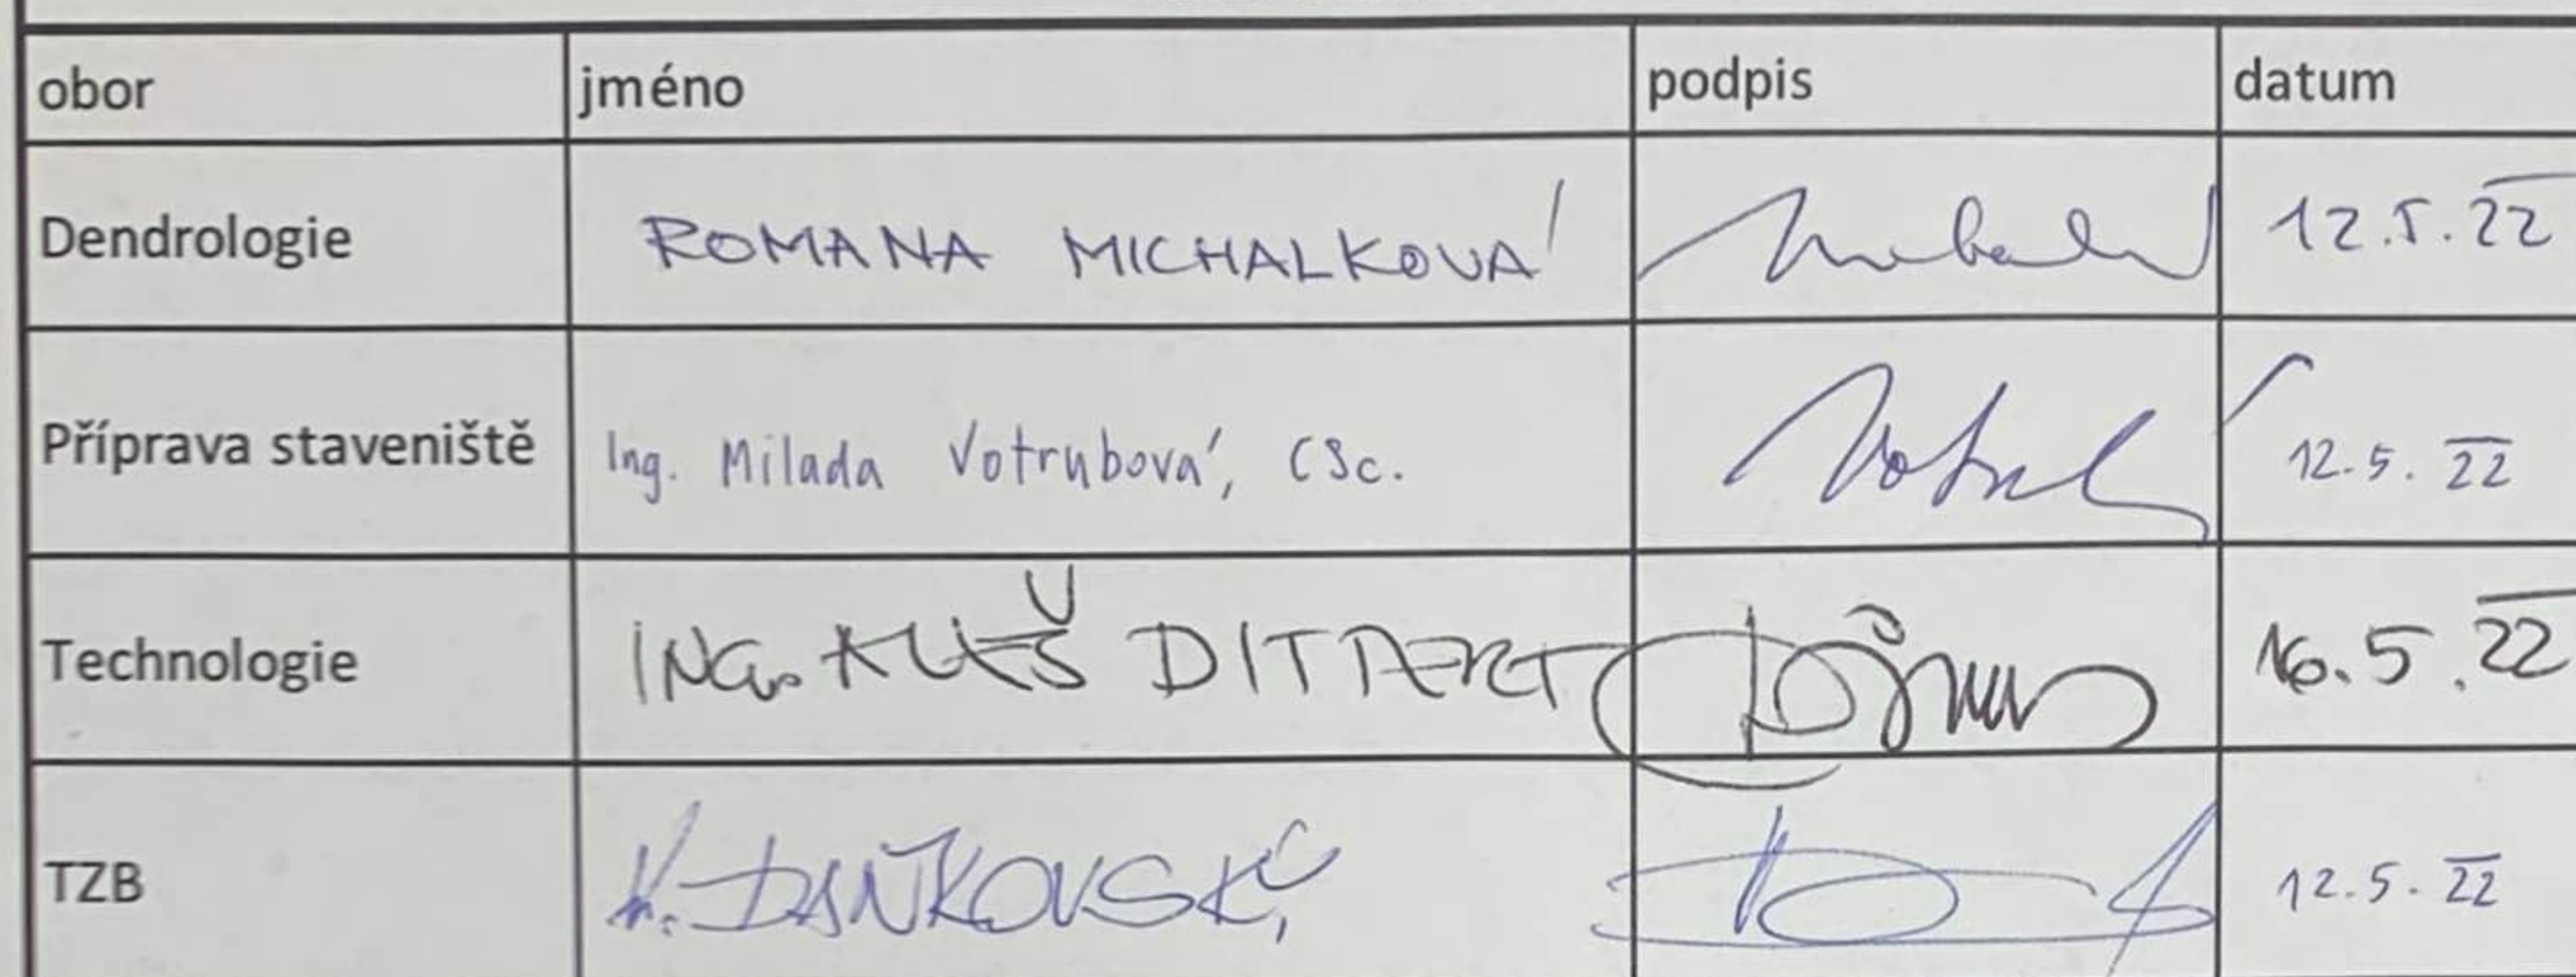 obor jméno podpis datum
Dendrologie ROMANA MICHALKOVÁ 12.5.22
Příprava staveniště Ing. Milada Votrubová, CSc. 12.5.22
Technologie ING. ALEŠ DITTERT 16.5.22
TZB DAŇKOVSKÝ 12.5.22